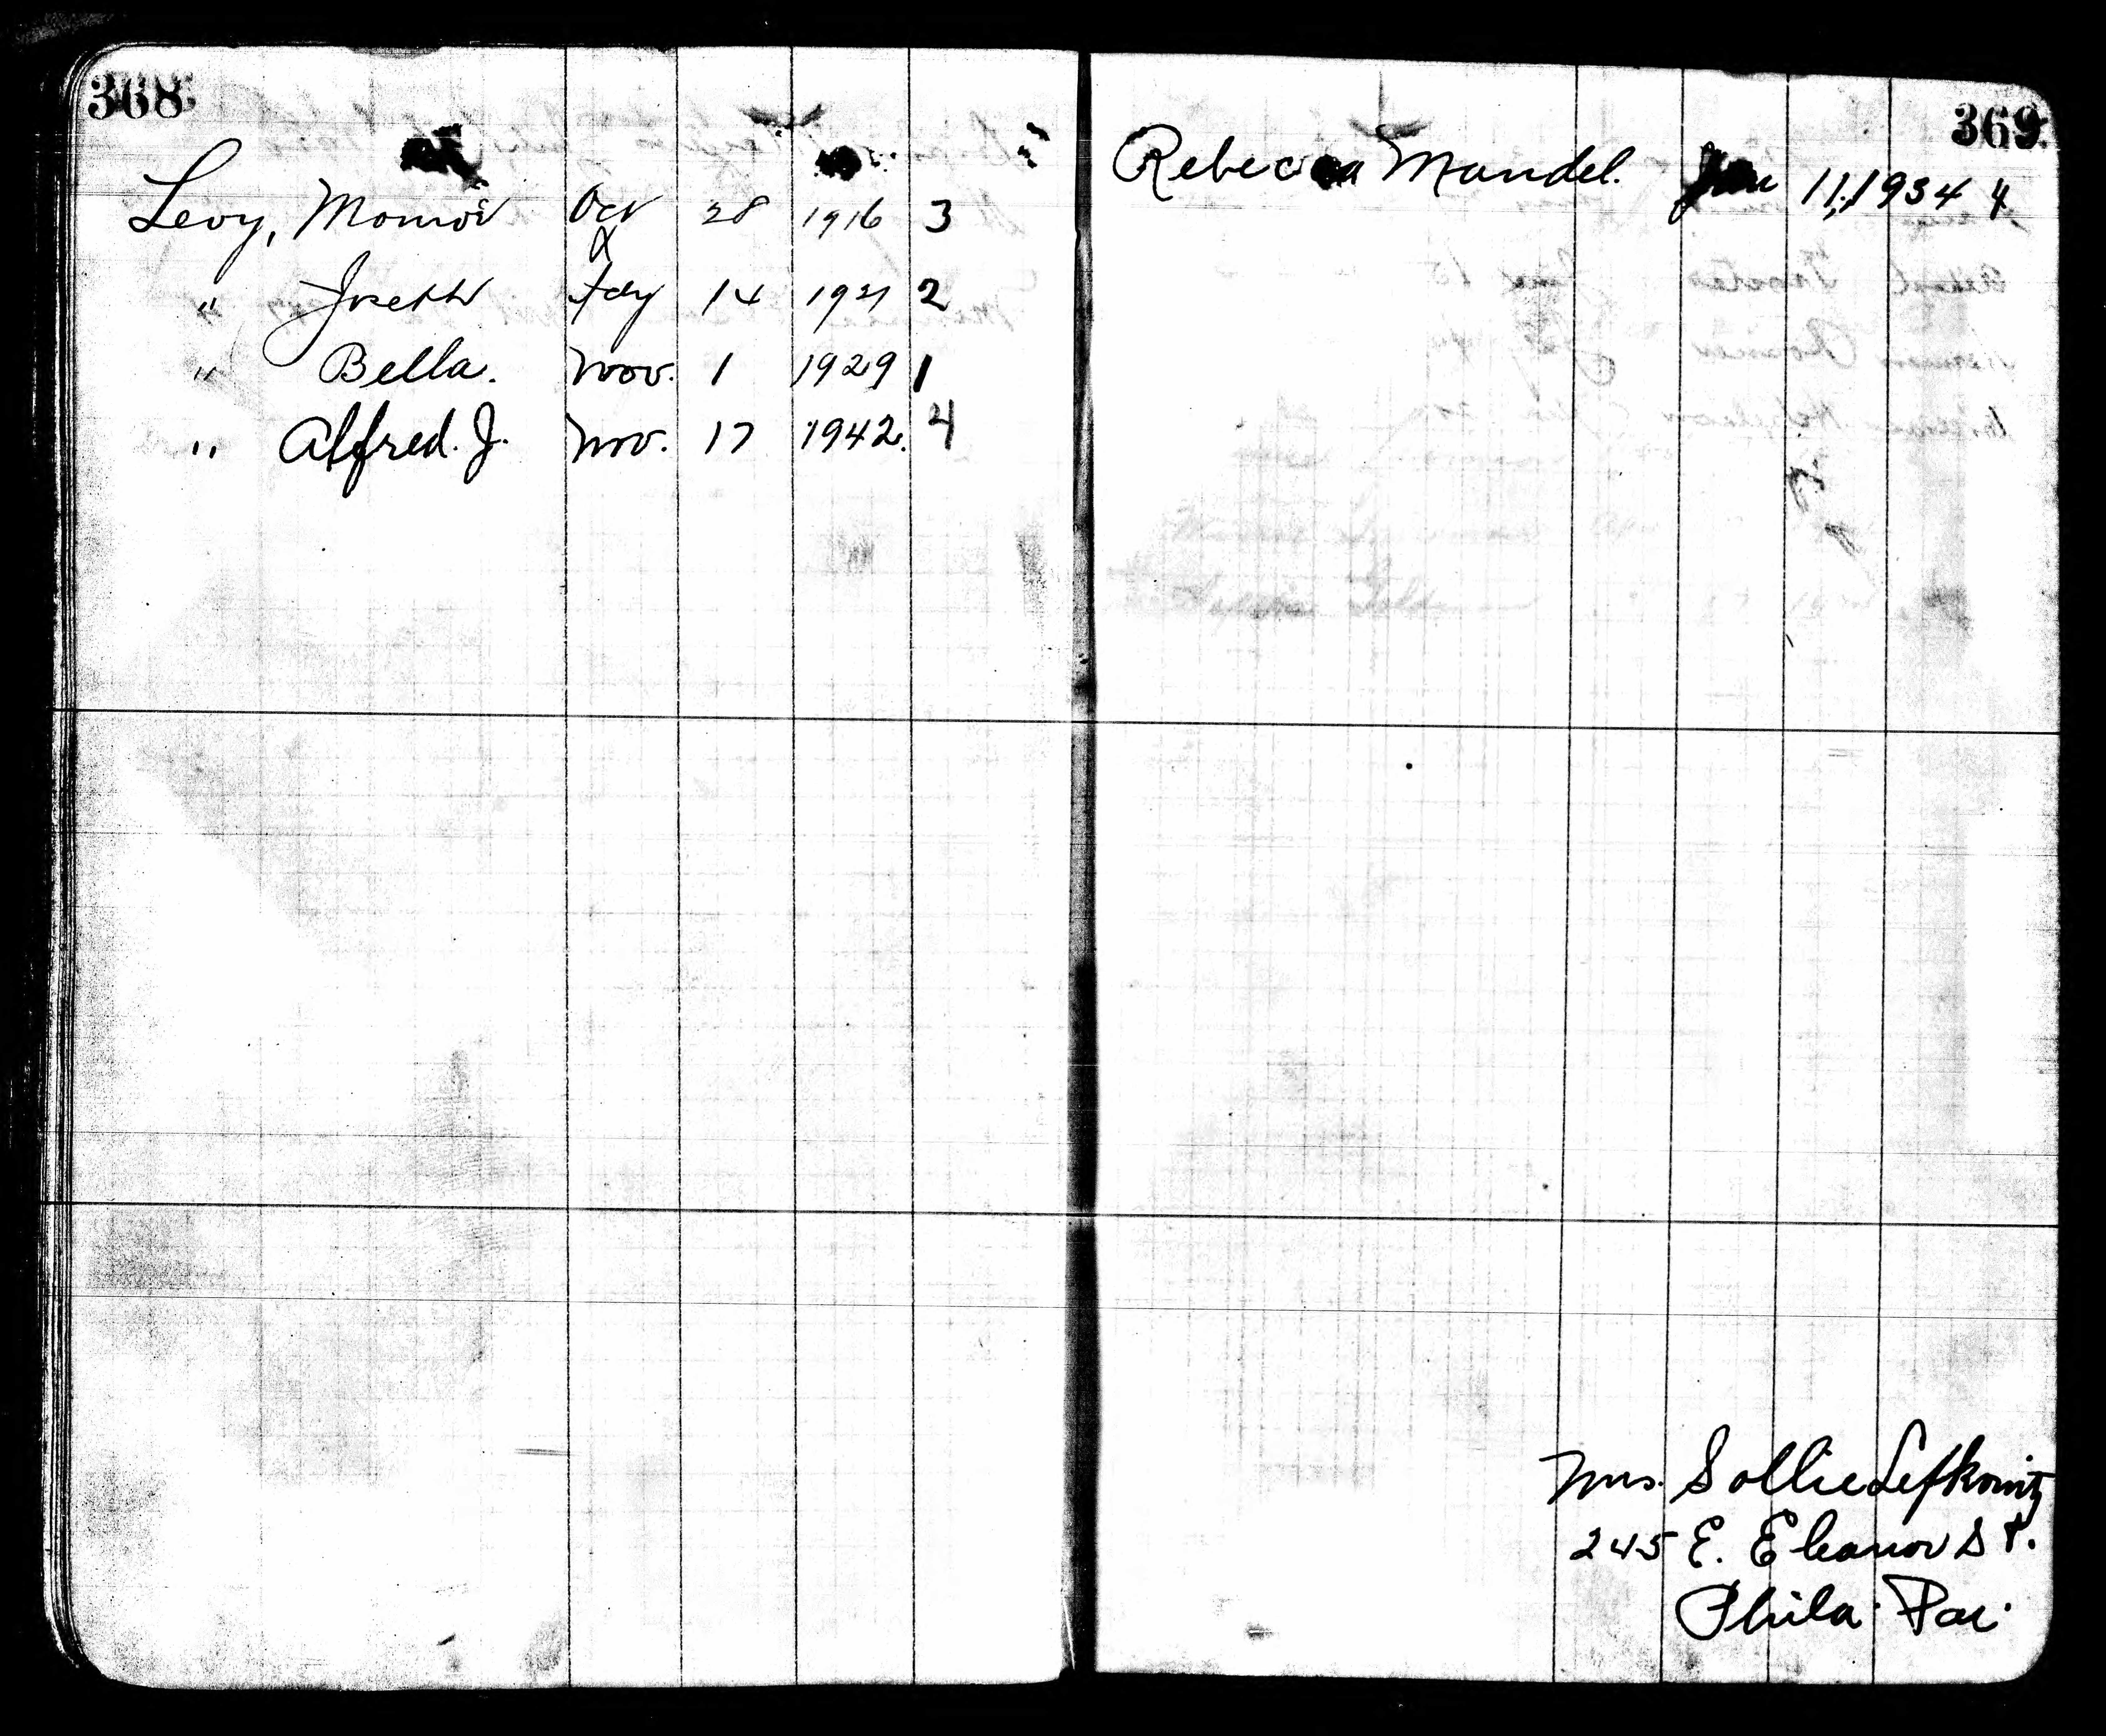 368
Levy, Oct 28 1916 3
" Joseph 14 1921 2
" Bella. Nov. 1 1929 1
" Alfred. J. Nov. 17 1942. 4
369
Rebecca Mandel. Jan 11, 1934 4
Mrs. Sollie Lefkowitz
245 E. Eleanor St.
Phila. Pa.